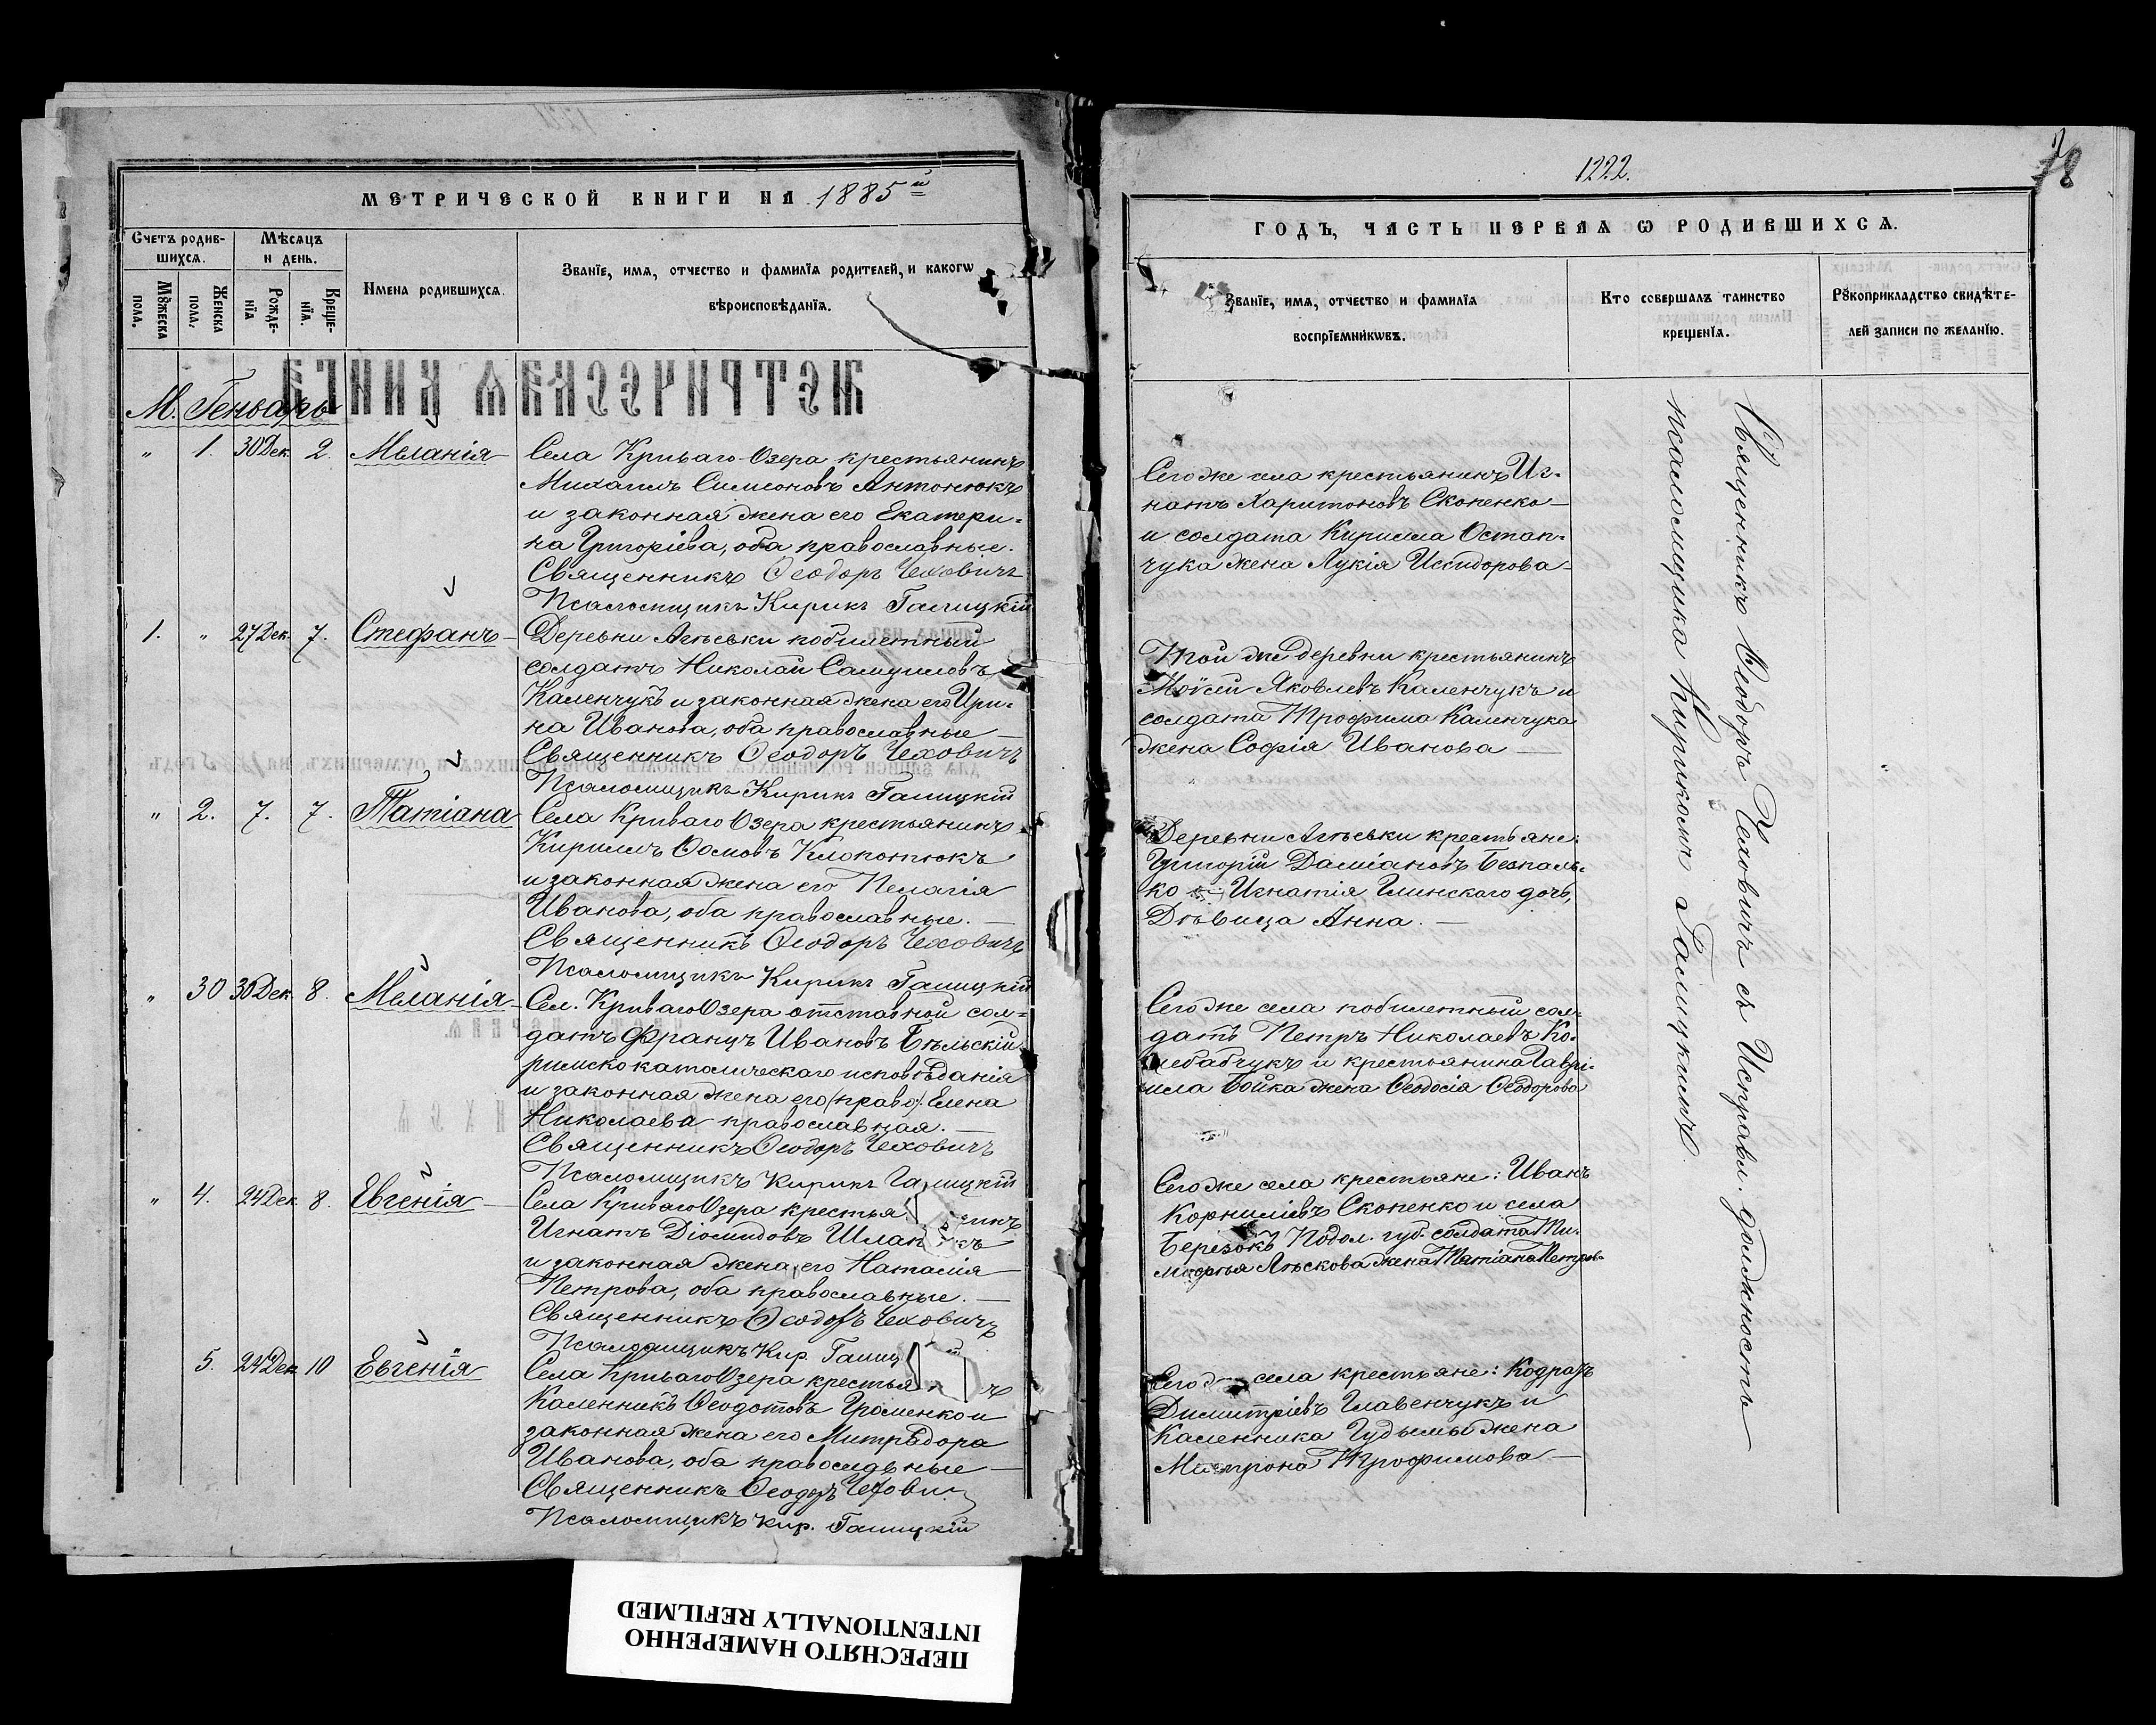 МЕТРИЧЕСКОЙ КНИГИ НА 1885й
Счетъ родившихся.
Мѣсяцъ и день.
Имена родившихся.
Званїе, имя, отчество и фамилїя родителей, и какогѡ
вѣроисповѣданїя.
Мꙋжеска пола.
Женска пола.
Рожденїя
Крещенїя.
М. Генварь
" 1. 30 Дек. 2. Меланія
Села Криваго-Озера крестьянинъ
Михаилъ Симеоновъ Антонюкъ
и законная жена его Екатери-
на Григоріева, оба православные.
Священникъ Ѳеодоръ Чеховичъ
Псаломщикъ Кирикъ Галицкій
1. " 27 Дек. 7. Стефанъ
Деревни Агѣевки побилетный
солдатъ Николай Самуиловъ
Каленчукъ и законная жена его Ири-
на Иванова, оба православные
Священникъ Ѳеодоръ Чеховичъ
Псаломщикъ Кирикъ Галицкій
" 2. 7. 7. Татіана
Села Криваго Озера крестьянинъ
Кириллъ Ѳомовъ Клопотюкъ
и законная жена его Пелагія
Иванова, оба православные.
Священникъ Ѳеодоръ Чеховичъ
Псаломщикъ Кирикъ Галицкій
" 30 30 Дек. 8. Меланія
Сел. Криваго Озера отставной сол-
датъ Францъ Ивановъ Бѣльскій
римско католическаго исповѣданія
и законная жена его (право). Елена
Николаева православная.
Священникъ Ѳеодоръ Чеховичъ
Псаломщикъ Кирикъ Галицкій
" 4. 24 Дек. 8. Евгенія
Села Криваго Озера крестья инъ
Игнатъ Діомидовъ
и законная жена его Наталія
Петрова, оба православные.
Священникъ Ѳеодоръ Чеховичъ
Псаломщикъ Кир. Галиц й
5. 24 Дек. 10 Евгенія
Села Криваго Озера крестья ъ
Каленникъ Ѳеодотовъ Громенко и
законная жена его Митрадора
Иванова, оба православные
Священникъ Ѳеодоръ Чехович
Псаломщикъ Кир. Галицкій
1222.
78
ГОДЪ, ЧАСТЬ ПЕРВАЯ Ѡ РОДИВШИХСЯ.
Званїе, имя, отчество и фамилїя
воспрїемникѡвъ.
Кто совершалъ таинство
крещенїя.
Рꙋкоприкладство свидѣте-
лей записи по желанїю.
Сего же села крестьянинъ Иг-
натъ Харитоновъ Скопенко
и солдата Кирилла Остап-
чука жена Лукія Исидорова
Той же деревни крестьянинъ
Моѵсей Яковлевъ Каленчукъ и
солдата Трофима Каленчука
жена Софія Иванова
Деревни Агѣевки крестьяне:
Григорій Даміановъ Безпаль-
ко Игнатія Глинскаго дочь,
Дѣвица Анна.
Сего же села побилетный сол-
датъ Петръ Николаевъ Ко-
лебабчукъ и крестьянина Гаврі-
ила Бойка жена Ѳеодосія Ѳеодорова
Сего же села крестьяне: Иванъ
Корниліевъ Скопенко и села
Березокъ Подол. губ. солдата Ти-
моѳея Лѣскова жена Татіана Петрова
Сего же села крестьяне: Кодратъ
Димитріевъ Главенчукъ и
Каленника Гудымы жена
Матрона Трофимова
Священникъ Ѳеодоръ Чеховичъ съ Исправл. должность
псаломщика Кирикомъ Галицкимъ.
ПЕРЕСНЯТО НАМЕРЕННО
INTENTIONALLY REFILMED